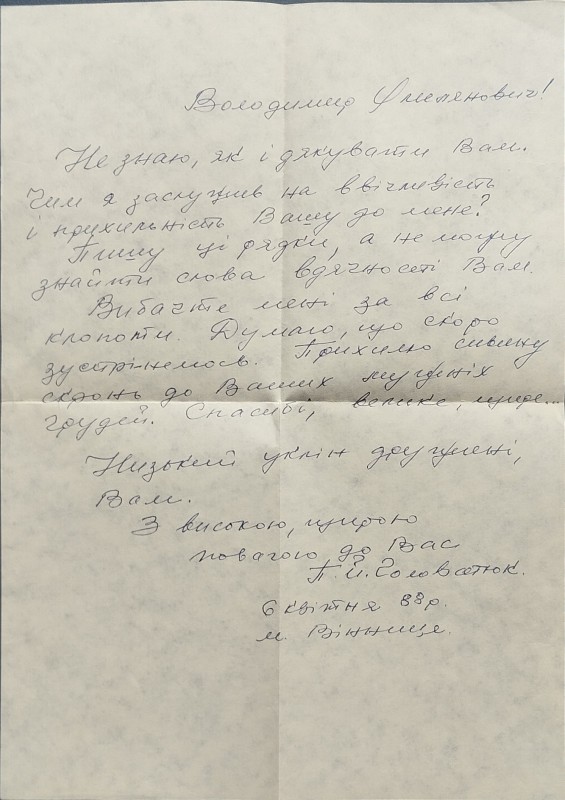 Володимир Омелянович!
Не знаю, як і дякувати Вам.
Чим я заслужив на ввічливість
і прихильність Вашу до мене?
Пишу ці рядки, а не можу
знайти слова вдячності Вам.
Вибачте мені за всі
клопоти. Думаю, що скоро
зустрінемось. Прихилю сивину
скронь до Ваших мужніх
грудей. Спасибі, велике, щире...
Низький уклін дружині,
Вам.
З високою, щирою
повагою до Вас
П.Й.Головатюк.
6 квітня 88р.
м. Вінниця.